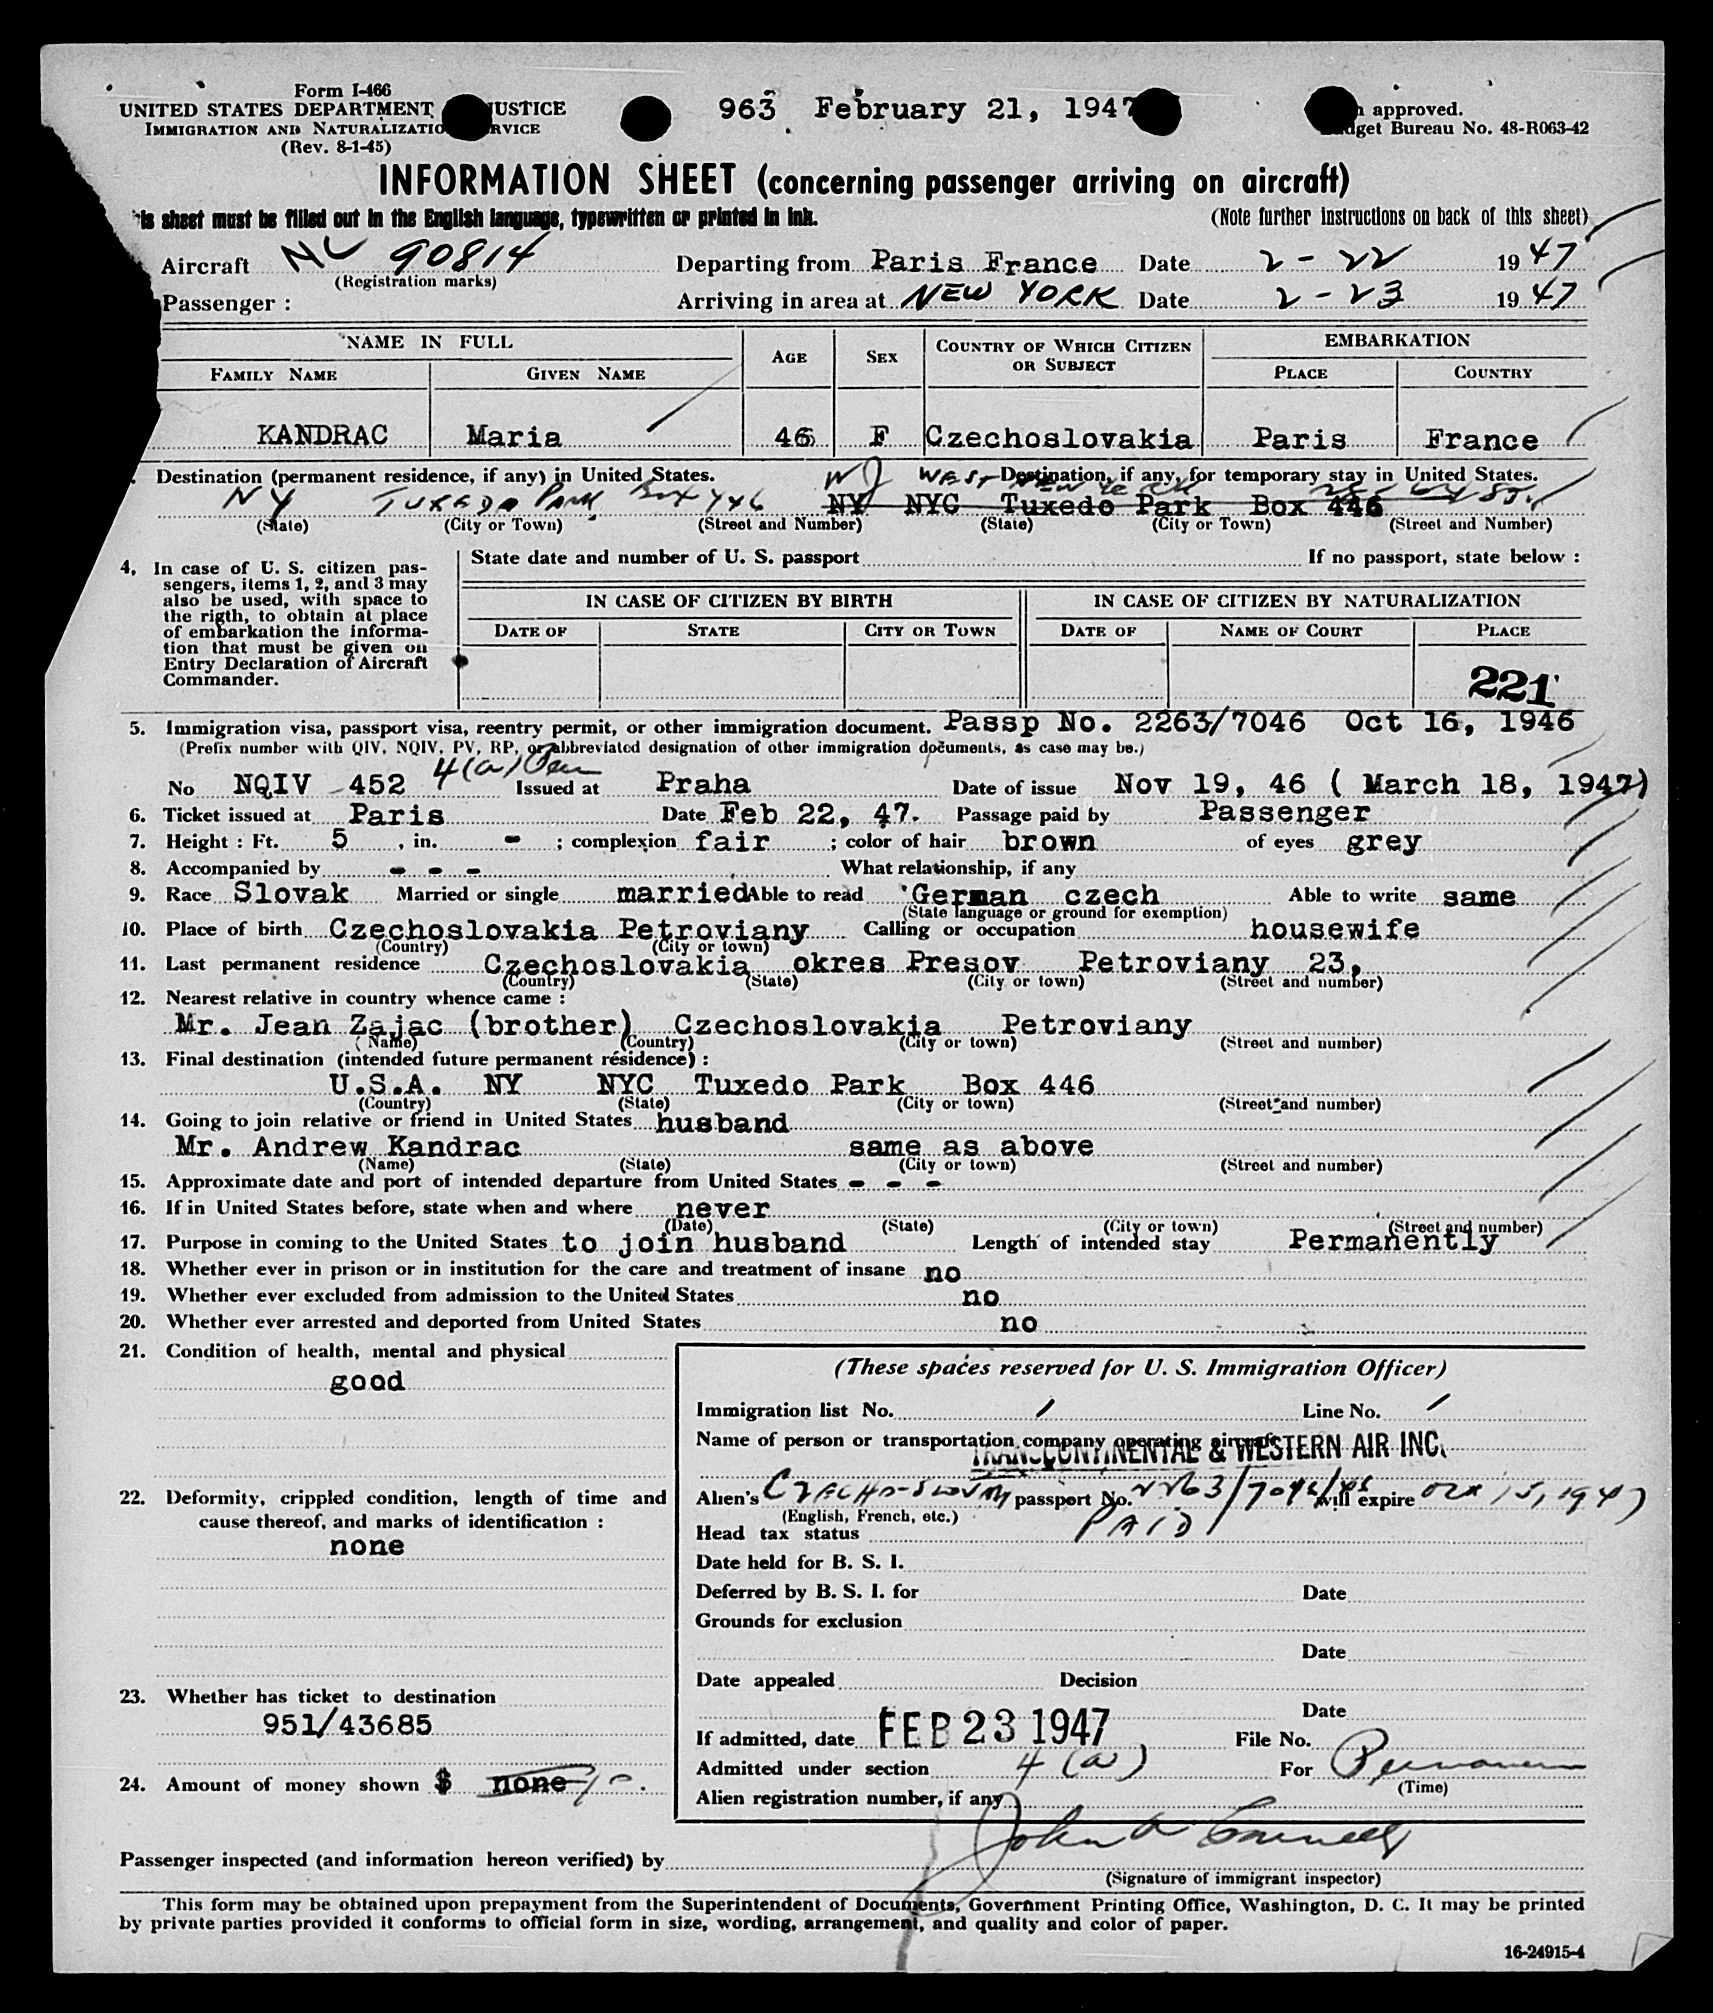 Form I-466
UNITED STATES DEPARTMENT JUSTICE
963 February 21, 1947
approved.
IMMIGRATION AND NATURALIZATIO RVICE
get Bureau No. 48-R063-42
(Rev. 8-1-45)
INFORMATION SHEET (concerning passenger arriving on aircraft)
is sheet must be filled out in the English language, typewritten or printed in ink.
(Note further instructions on back of this sheet)
Aircraft NC 90814 Departing from Paris France Date 2-22 1947
(Registration marks)
Passenger : Arriving in area at NEW YORK Date 2-23 1947
NAME IN FULL AGE SEX COUNTRY OF WHICH CITIZEN OR SUBJECT EMBARKATION
FAMILY NAME GIVEN NAME PLACE COUNTRY
KANDRAC Maria 46 F Czechoslovakia Paris France
Destination (permanent residence, if any) in United States. Destination, if any, for temporary stay in United States.
NY TUXEDO PARK Box 446 NJ WEST NEW YORK 64 ST.
NY NYC Tuxedo Park Box 446
(State) (City or Town) (Street and Number) (State) (City or Town) (Street and Number)
4. In case of U. S. citizen pas-
sengers, items 1, 2, and 3 may
also be used, with space to
the rigth, to obtain at place
of embarkation the informa-
tion that must be given on
Entry Declaration of Aircraft
Commander.
State date and number of U. S. passport If no passport, state below :
IN CASE OF CITIZEN BY BIRTH IN CASE OF CITIZEN BY NATURALIZATION
DATE OF STATE CITY OR TOWN DATE OF NAME OF COURT PLACE
221
5. Immigration visa, passport visa, reentry permit, or other immigration document. Passp No. 2263/7046 Oct 16, 1946
(Prefix number with QIV, NQIV, PV, RP, or abbreviated designation of other immigration documents, as case may be.)
No NQIV 452 4(a) Per Issued at Praha Date of issue Nov 19, 46 ( March 18, 1947)
6. Ticket issued at Paris Date Feb 22, 47. Passage paid by Passenger
7. Height : Ft. 5 , in. - ; complexion fair ; color of hair brown of eyes grey
8. Accompanied by - - - What relationship, if any
9. Race Slovak Married or single married Able to read German czech Able to write same
(State language or ground for exemption)
10. Place of birth Czechoslovakia Petroviany Calling or occupation housewife
(Country) (City or town)
11. Last permanent residence Czechoslovakia okres Presov Petroviany 23,
(Country) (State) (City or town) (Street and number)
12. Nearest relative in country whence came :
Mr. Jean Zajac (brother) Czechoslovakia Petroviany
(Name) (Country) (City or town) (Street and number)
13. Final destination (intended future permanent résidence) :
U.S.A. NY NYC Tuxedo Park Box 446
(Country) (State) (City or town) (Street and number)
14. Going to join relative or friend in United States husband
Mr. Andrew Kandrac same as above
(Name) (State) (City or town) (Street and number)
15. Approximate date and port of intended departure from United States - - -
16. If in United States before, state when and where never
(Date) (State) (City or town) (Street and number)
17. Purpose in coming to the United States to join husband Length of intended stay Permanently
18. Whether ever in prison or in institution for the care and treatment of insane no
19. Whether ever excluded from admission to the United States no
20. Whether ever arrested and deported from United States no
21. Condition of health, mental and physical
good
22. Deformity, crippled condition, length of time and
cause thereof, and marks of identification :
none
23. Whether has ticket to destination
951/43685
24. Amount of money shown $ none
(These spaces reserved for U. S. Immigration Officer)
Immigration list No. 1 Line No. 1
Name of person or transportation company operating aircraft
TRANSCONTINENTAL & WESTERN AIR INC.
Alien's CZECHO-SLOVAK passport No. 2263/7046/46 will expire Oct 15, 1947
(English, French, etc.)
Head tax status PAID
Date held for B. S. I.
Deferred by B. S. I. for Date
Grounds for exclusion
Date
Date appealed Decision
Date
If admitted, date FEB 23 1947 File No.
Admitted under section 4 (a) For Permanent
(Time)
Alien registration number, if any
Passenger inspected (and information hereon verified) by John A
(Signature of immigrant inspector)
This form may be obtained upon prepayment from the Superintendent of Documents, Government Printing Office, Washington, D. C. It may be printed
by private parties provided it conforms to official form in size, wording, arrangement, and quality and color of paper.
16-24915-4